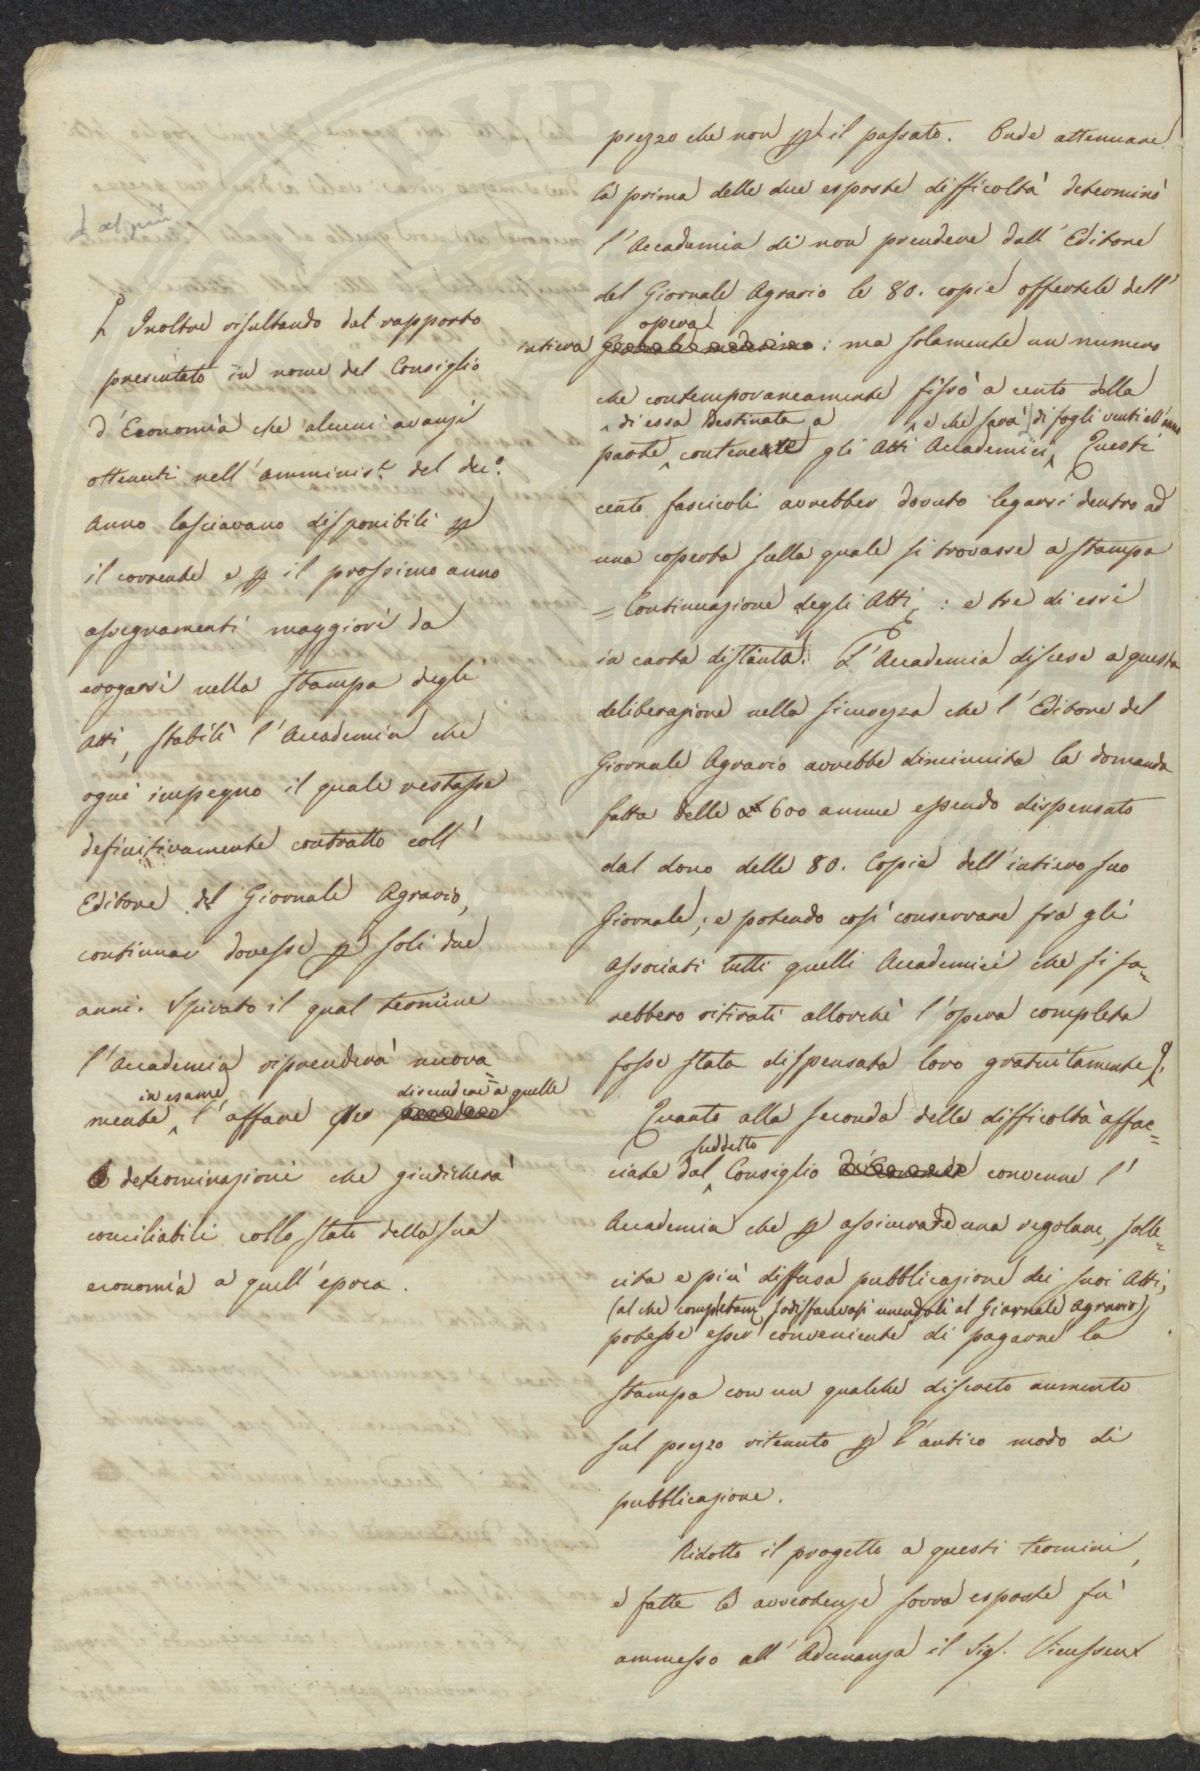 prezzo che non p il passato. Onde attenuare
la prima delle due esposte difficoltà determinò
l'Accademia di non prendere dall'Editore
del Giornale Agrario le 80. copie offertele dell'
intiera opera : ma solamente un numero
che contemporaneamente fissò a cento della
parte di essa destinata a contenere gli Atti Accademici e che sarà di fogli venti all'anno Questi
cento fascicoli avrebber dovuto legarsi dentro ad
una coperta sulla quale si trovasse a stampa
= Continuazione degli Atti, : e tre di essi
in carta distinta. L'Accademia discese a questa
deliberazione nella sicurezza che l'Editore del
Giornale Agrario avrebbe diminuita la domanda
fatta delle £ 600 annue essendo dispensato
dal dono delle 80. Copie dell'intiero suo
Giornale; e potendo così conservare fra gli
Associati tutti quelli Accademici che si sa=
rebbero ritirati allorchè l'opera completa
fosse stata dispensata loro gratuitamente.
Quanto alla seconda delle difficoltà affac=
ciate dal suddetto Consiglio convenne l'
Accademia che p assicurare una regolare, solle=
cita e più diffusa pubblicazione dei suoi Atti,
(al che completam. sodisfacevasi unendoli al Giornale Agrario)
potesse esser conveniente di pagarne la
stampa con un qualche discreto aumento
sul prezzo ritenuto p l'antico modo di
pubblicazione.
Ridotto il progetto a questi termini,
e fatte le avvertenze sovra esposte fù
ammesso all'Adunanza il Sig. Vieusseux
al più
Inoltre risultando dal rapporto
presentato in nome del Consiglio
d'Economia che alcuni avanzi
ottenuti nell'amminist.e del dec.o
Anno lasciavano disponibili p
il corrente e p il prossimo anno
assegnamenti maggiori da
erogarsi nella stampa degli
Atti, stabilì l'Accademia che
ogni impegno il quale restasse
definitivamente contratto coll'
Editore del Giornale Agrario,
continuar dovesse p soli due
anni. Spirato il qual termine
l'Accademia riprenderà nuova=
mente in esame l'affare per discendere a quelle
determinazioni che giudicherà
conciliabili collo stato della sua
economia a quell'epoca.